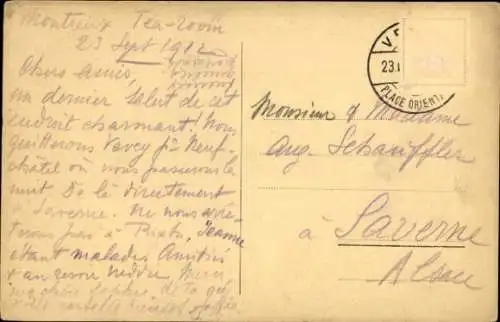 Montreux Tea-room
23 Sept 1912
Chers amis
un dernier salut de cet
endroit charmant! Nous
quitterons Vevey pr Neuf-
châtel où nous passerons la
nuit De là directement
à Saverne. Ne nous arrê-
terons pas à Jeanne
étant malades Amitiés
&
de ta
VE
23.
PLACE ORIENT
Monsieur & Madame
Aug. Schäuffler
à
Saverne
Alsace